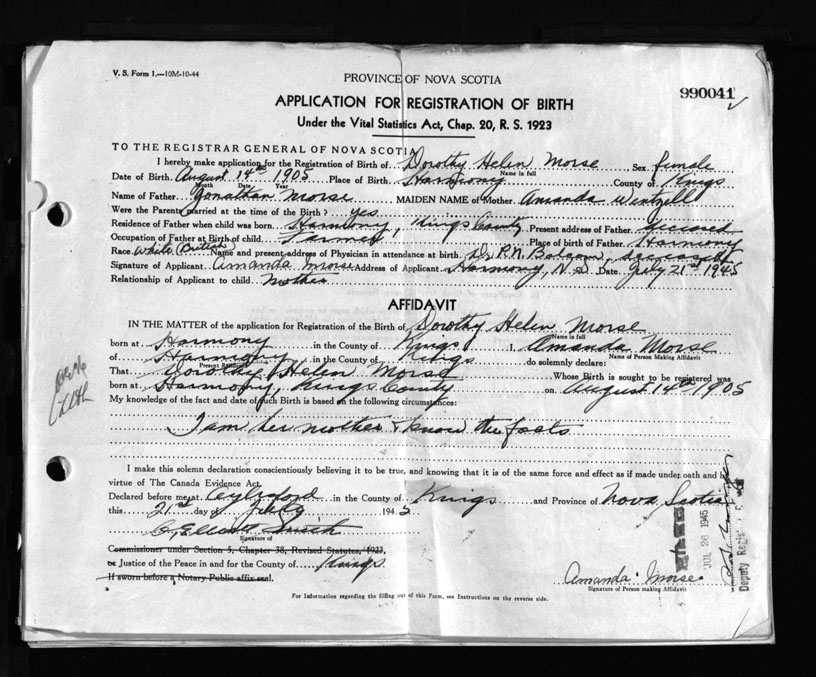 V. S. Form 1.—10M-10-44
PROVINCE OF NOVA SCOTIA
990041
APPLICATION FOR REGISTRATION OF BIRTH
Under the Vital Statistics Act, Chap. 20, R. S. 1923
TO THE REGISTRAR GENERAL OF NOVA SCOTIA
I hereby make application for the Registration of Birth of Dorothy Helen Morse Sex female
Name in full
Date of Birth August 14th 1905 Place of Birth Harmony County of Kings
Month Date Year
Name of Father Jonathan Morse MAIDEN NAME of Mother Amanda Wentzell
Were the Parents married at the time of the Birth? yes
Residence of Father when child was born Harmony, Kings County Present address of Father deceased
Occupation of Father at Birth of child Farmer Place of Birth of Father Harmony
Race White (British) Name and present address of Physician in attendance at birth Dr. P. N. Balcom, deceased
Signature of Applicant Amanda Morse Address of Applicant Harmony, N.S. Date July 21st 1945
Relationship of Applicant to child mother
AFFIDAVIT
IN THE MATTER of the application for Registration of the Birth of Dorothy Helen Morse
Name in full
born at Harmony in the County of Kings I, Amanda Morse
Name of Person Making Affidavit
of Harmony in the County of Kings do solemnly declare:
Present Residence
That Dorothy Helen Morse Whose Birth is sought to be registered was
born at Harmony, Kings County on August 14th 1905
My knowledge of the fact and date of such Birth is based on the following circumstances:
I am her mother & know the facts
I make this solemn declaration conscientiously believing it to be true, and knowing that it is of the same force and effect as if made under oath and by
virtue of The Canada Evidence Act.
Declared before me at Aylesford in the County of Kings and Province of Nova Scotia
this 21st day of July 1945
C. Elliott Smith
Signature of
Commissioner under Section 5, Chapter 38, Revised Statutes, 1923,
or Justice of the Peace in and for the County of Kings
If sworn before a Notary Public affix seal.
Amanda Morse
Signature of Person making Affidavit
JUL 26 1945
Deputy Registrar
For Information regarding the filling out of this Form, see Instructions on the reverse side.